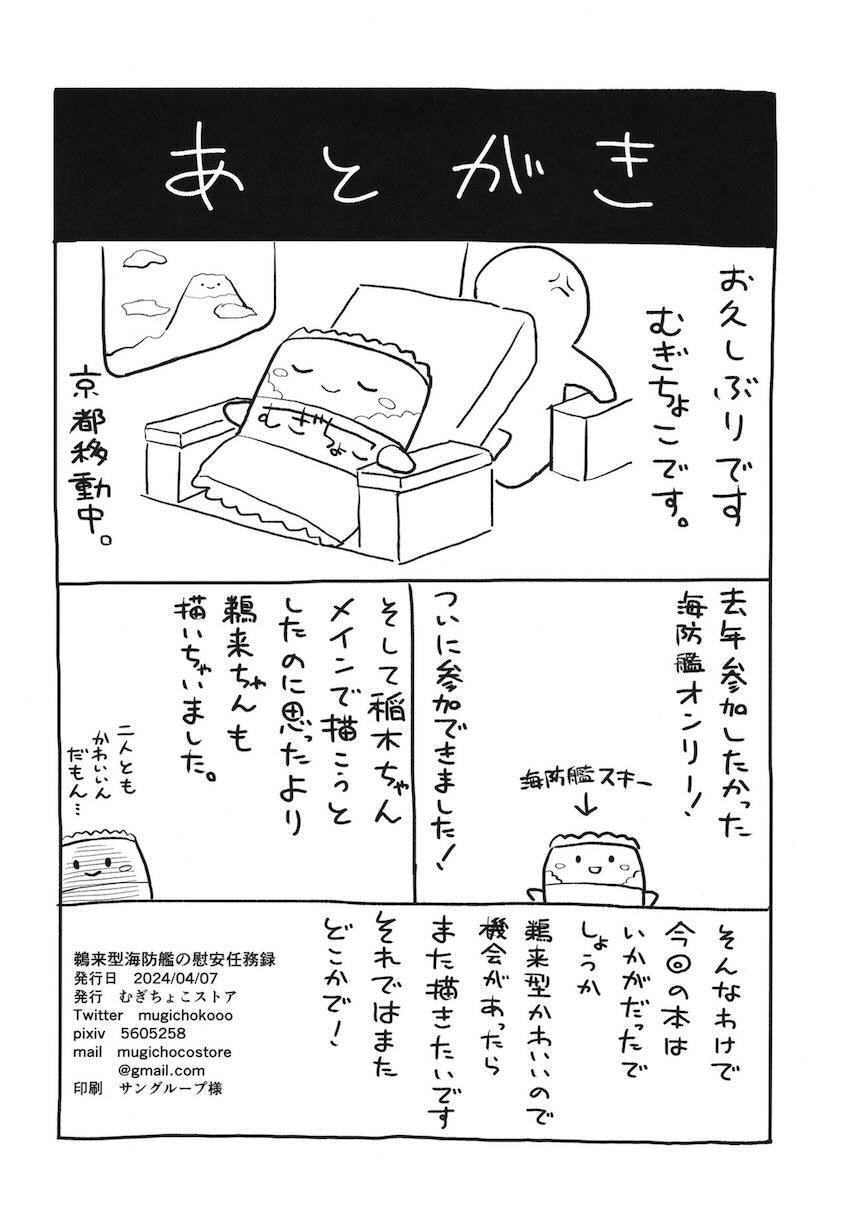 あとがき
お久しぶりです
むぎちょこです。
むぎちょこ
京都移動中。
去年参加したかった
海防艦オンリー！
海防艦スキー
↓
ついに参加できました！
そして稲木ちゃん
メインで描こうと
したのに思ったより
鵜来ちゃんも
描いちゃいました。
二人とも
かわいいん
だもん…
そんなわけで
今回の本は
いかがだったで
しょうか
鵜来型かわいいので
機会があったら
また描きたいです
それではまた
どこかで！
鵜来型海防艦の慰安任務録
発行日　2024/04/07
発行　むぎちょこストア
Twitter　mugichokooo
pixiv　5605258
mail　mugichocostore
@gmail.com
印刷　サングループ様